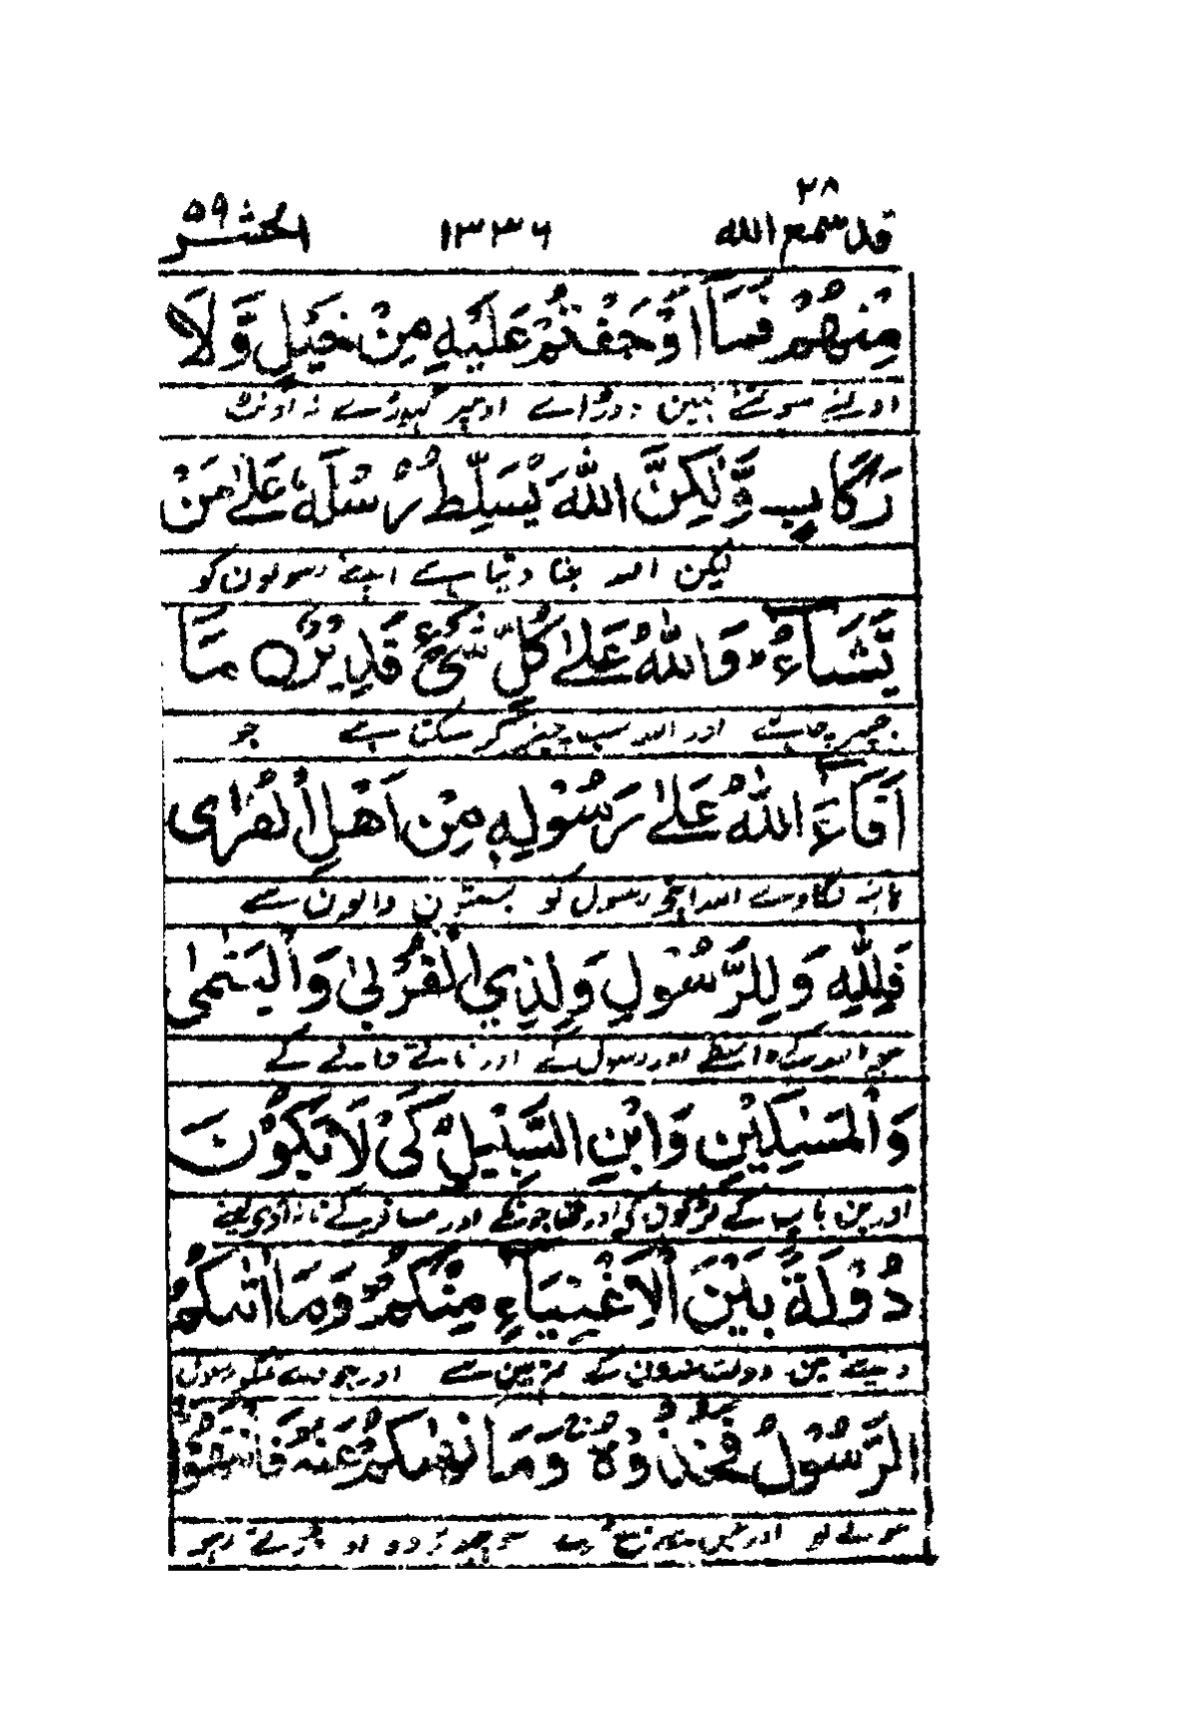 قد سمع الله ٢٨
١٣٣٦
الحشر ٥٩
مِنْهُمْ فَمَآ اَوْجَفْتُمْ عَلَيْهِ مِنْ خَيْلٍ وَّلَا
سو تمنے نہین دوڑاے اوسپر گھوڑے نہ اونٹ
رِكَابٍ وَّلٰكِنَّ اللّٰهَ يُسَلِّطُ رُسُلَهٗ عَلٰى مَنْ
لیکن اللہ دیتا ہے اپنے رسولون کو
يَّشَآءُ ؕ وَاللّٰهُ عَلٰى كُلِّ شَيْءٍ قَدِيْرٌ ○ مَآ
جسپر چاہے اور اللہ سب چیز کر سکتا ہے جو
اَفَآءَ اللّٰهُ عَلٰى رَسُوْلِهٖ مِنْ اَهْلِ الْقُرٰى
ہاتھ لگاوے اللہ اپنے رسول کو بستیون والون سے
فَلِلّٰهِ وَلِلرَّسُوْلِ وَلِذِي الْقُرْبٰى وَالْيَتٰمٰى
سو اللہ کے واسطے اور رسول کے اور ناتے والے کے
وَالْمَسٰكِيْنِ وَابْنِ السَّبِيْلِ كَيْ لَا يَكُوْنَ
اور بن باپ کے لڑکون کے اور محتاجونکے اور مسافر کے تا نہ آوے لینے
دُوْلَةًۢ بَيْنَ الْاَغْنِيَآءِ مِنْكُمْ ؕ وَمَآ اٰتٰىكُمُ
دینے مین دولتمندون کے تم مین سے اور جو دے تمکو رسول
الرَّسُوْلُ فَخُذُوْهُ وَمَا نَهٰىكُمْ عَنْهُ فَانْتَهُوْا
سو لے لو اور جس سے منع کرے سو چھوڑ دو اور ڈرتے رہو